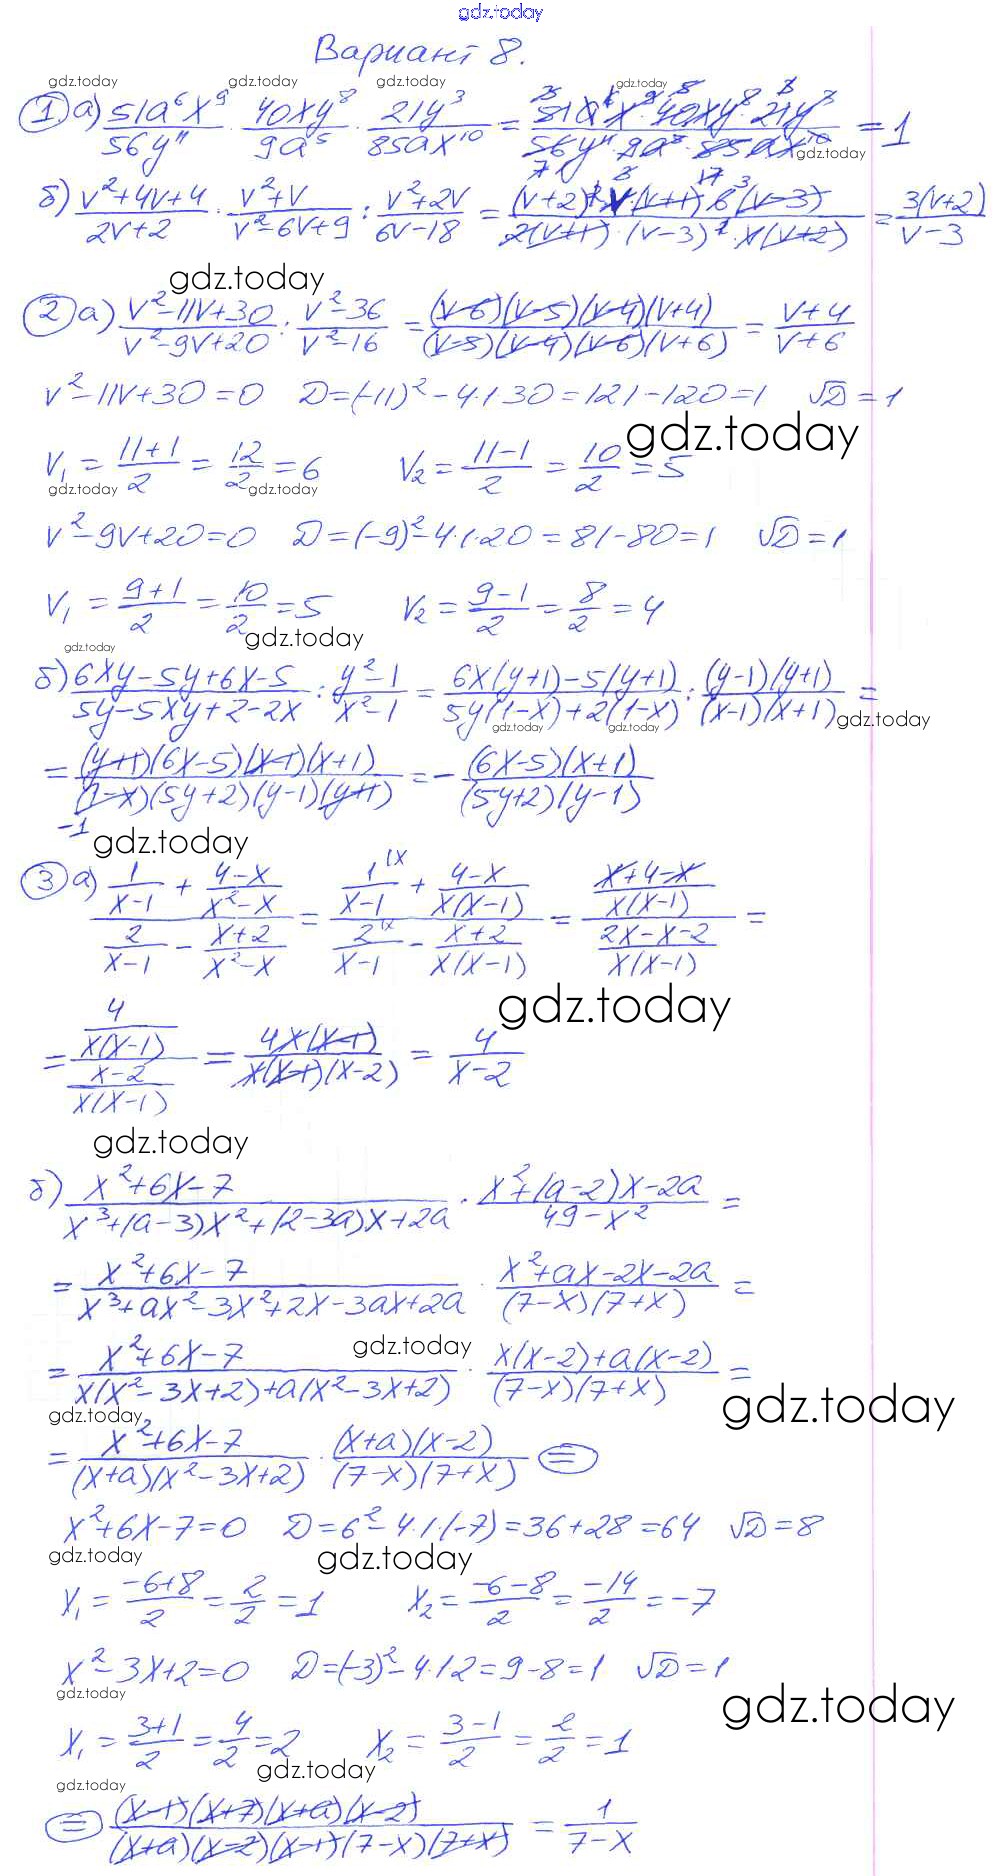 gdz.today
Вариант 8.
gdz.today gdz.today gdz.today
1 а) 51a⁶x⁹/56y¹¹ · 40xy⁸/9a⁵ · 21y³/85ax¹⁰ = 51a⁶x⁹·40xy⁸·21y³/56y¹¹·9a⁵·85ax¹⁰ = 1
gdz.today
б) v²+4v+4/2v+2 · v²+v/v²-6v+9 : v²+2v/6v-18 = (v+2)²·v(v+1)·6(v-3)/2(v+1)·(v-3)²·v(v+2) = 3(v+2)/v-3
gdz.today
2 а) v²-11v+30/v²-9v+20 : v²-36/v²-16 = (v-6)(v-5)(v-4)(v+4)/(v-5)(v-4)(v-6)(v+6) = v+4/v+6
v²-11v+30=0 D=(-11)²-4·1·30=121-120=1 √D=1
gdz.today
v₁=11+1/2=12/2=6 v₂=11-1/2=10/2=5
gdz.today gdz.today
v²-9v+20=0 D=(-9)²-4·1·20=81-80=1 √D=1
v₁=9+1/2=10/2=5 v₂=9-1/2=8/2=4
gdz.today
gdz.today
б) 6xy-5y+6x-5/5y-5xy+2-2x : y²-1/x²-1 = 6x(y+1)-5(y+1)/5y(1-x)+2(1-x) : (y-1)(y+1)/(x-1)(x+1) =
gdz.today gdz.today gdz.today
= (y+1)(6x-5)(x-1)(x+1)/(1-x)(5y+2)(y-1)(y+1) = -(6x-5)(x+1)/(5y+2)(y-1)
-1
gdz.today
3 а) (1/x-1 + 4-x/x²-x)/(2/x-1 - x+2/x²-x) = (1\x/x-1 + 4-x/x(x-1))/(2\x/x-1 - x+2/x(x-1)) = (x+4-x/x(x-1))/(2x-x-2/x(x-1)) =
gdz.today
= (4/x(x-1))/(x-2/x(x-1)) = 4x(x-1)/x(x-1)(x-2) = 4/x-2
gdz.today
б) x²+6x-7/x³+(a-3)x²+(2-3a)x+2a · x²+(a-2)x-2a/49-x² =
= x²+6x-7/x³+ax²-3x²+2x-3ax+2a · x²+ax-2x-2a/(7-x)(7+x) =
gdz.today
= x²+6x-7/x(x²-3x+2)+a(x²-3x+2) · x(x-2)+a(x-2)/(7-x)(7+x) =
gdz.today gdz.today
= x²+6x-7/(x+a)(x²-3x+2) · (x+a)(x-2)/(7-x)(7+x) =
x²+6x-7=0 D=6²-4·1·(-7)=36+28=64 √D=8
gdz.today gdz.today
x₁=-6+8/2=2/2=1 x₂=-6-8/2=-14/2=-7
x²-3x+2=0 D=(-3)²-4·1·2=9-8=1 √D=1
gdz.today gdz.today
x₁=3+1/2=4/2=2 x₂=3-1/2=2/2=1
gdz.today
gdz.today
= (x-1)(x+7)(x+a)(x-2)/(x+a)(x-2)(x-1)(7-x)(7+x) = 1/7-x